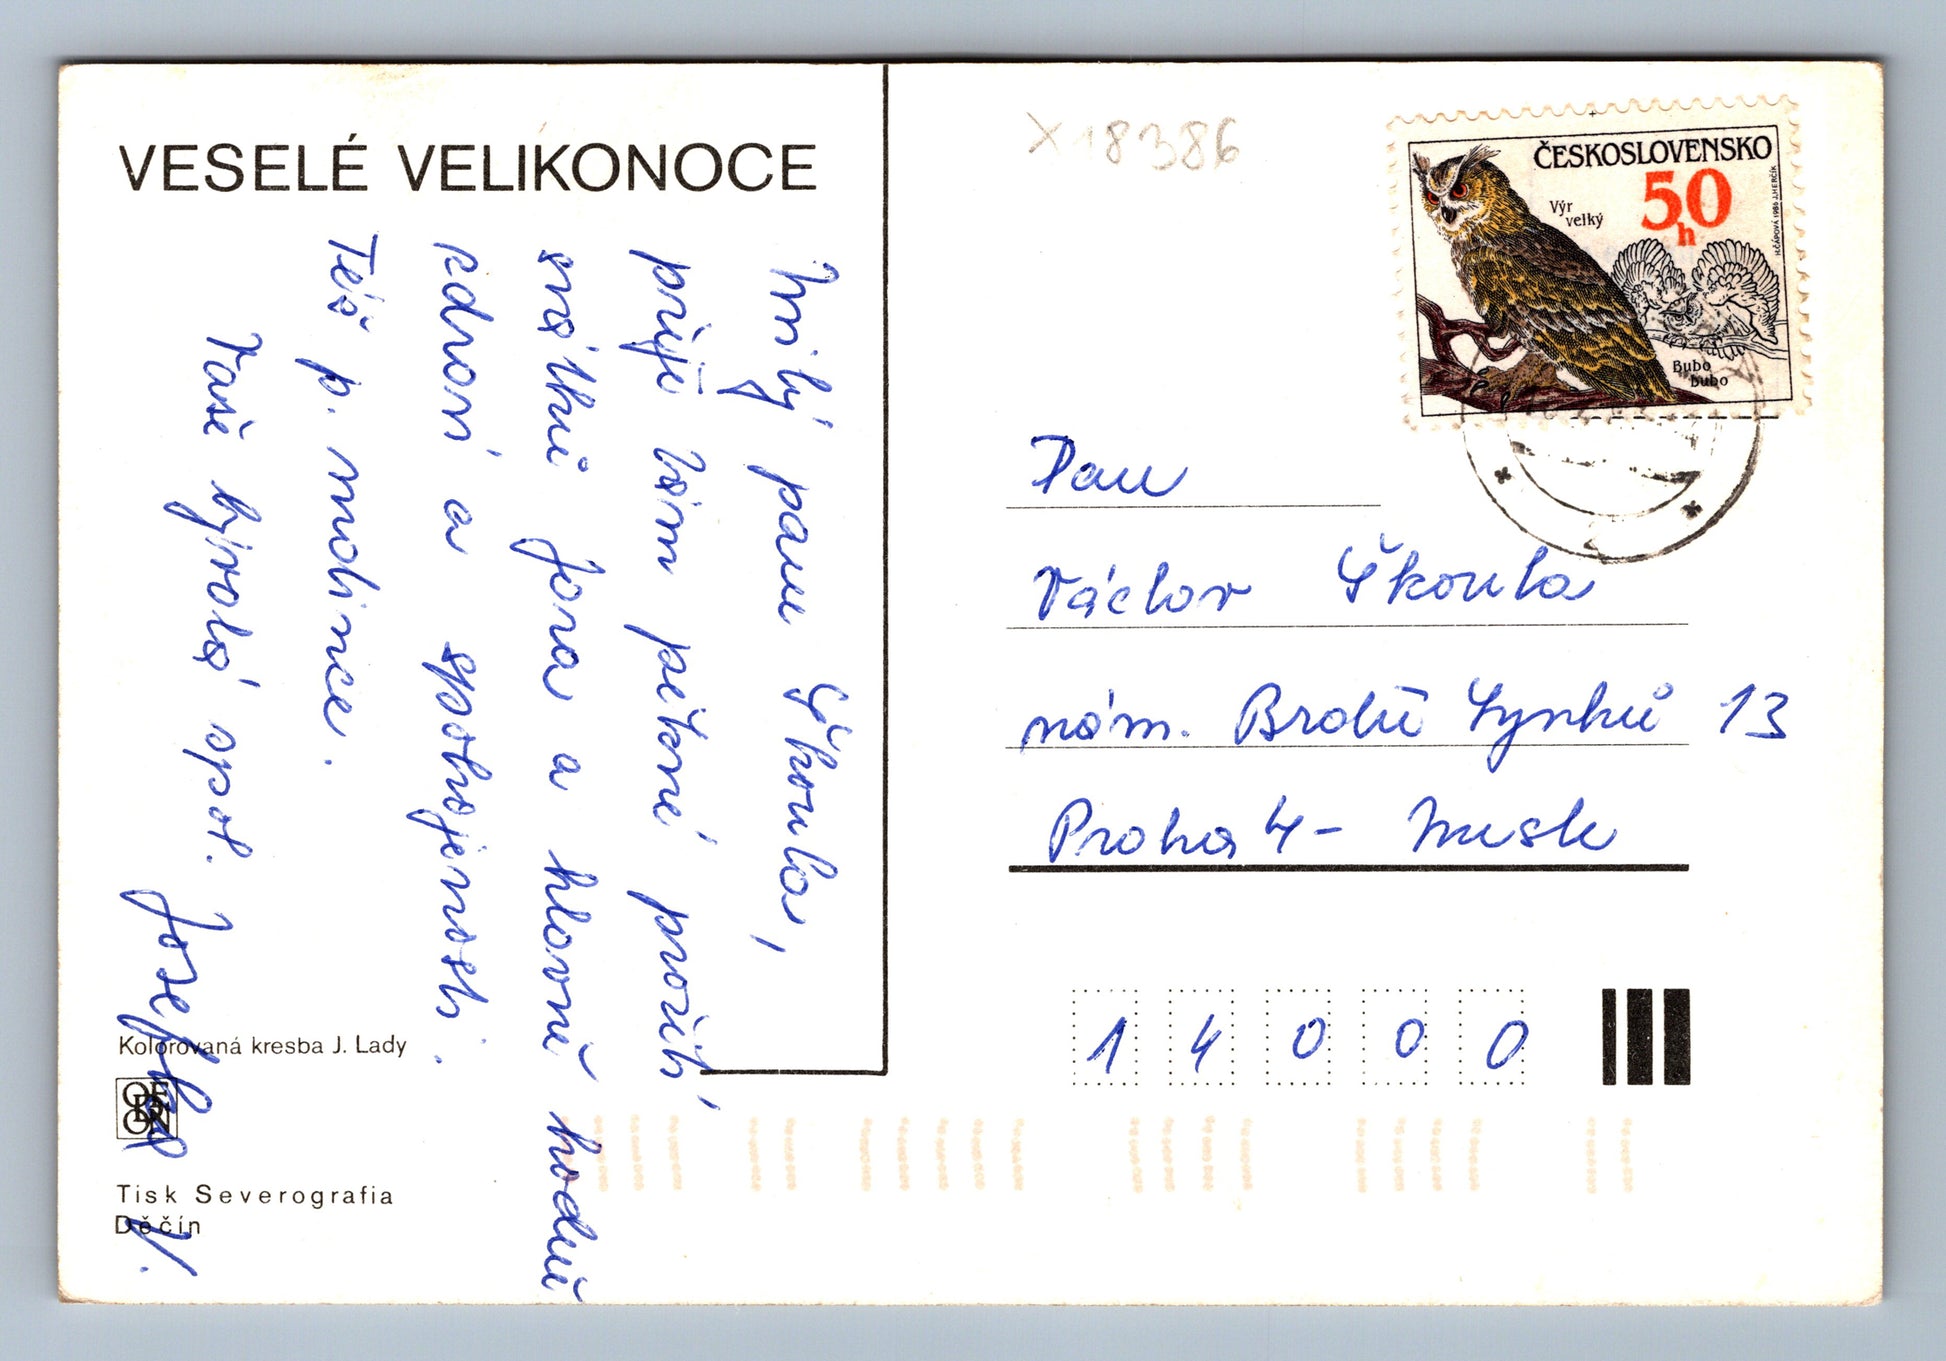 VESELÉ VELIKONOCE
Milý pane Škoula,
přeji Vám pěkné prožití
svátků jara a hlavně hodně
zdraví a spokojenosti.
Též p. modince.
Vaše bývalá spol.
Josefka V.
Kolorovaná kresba J. Lady
ODEON
Tisk Severografia
Děčín
X18386
ČESKOSLOVENSKO
50
h
Výr
velký
Bubo
bubo
H.ČÁPOVÁ 1986 J.HERČÍK
Pan
Václav Škoula
nám. Bratří Synků 13
Praha 4 - Nusle
14000